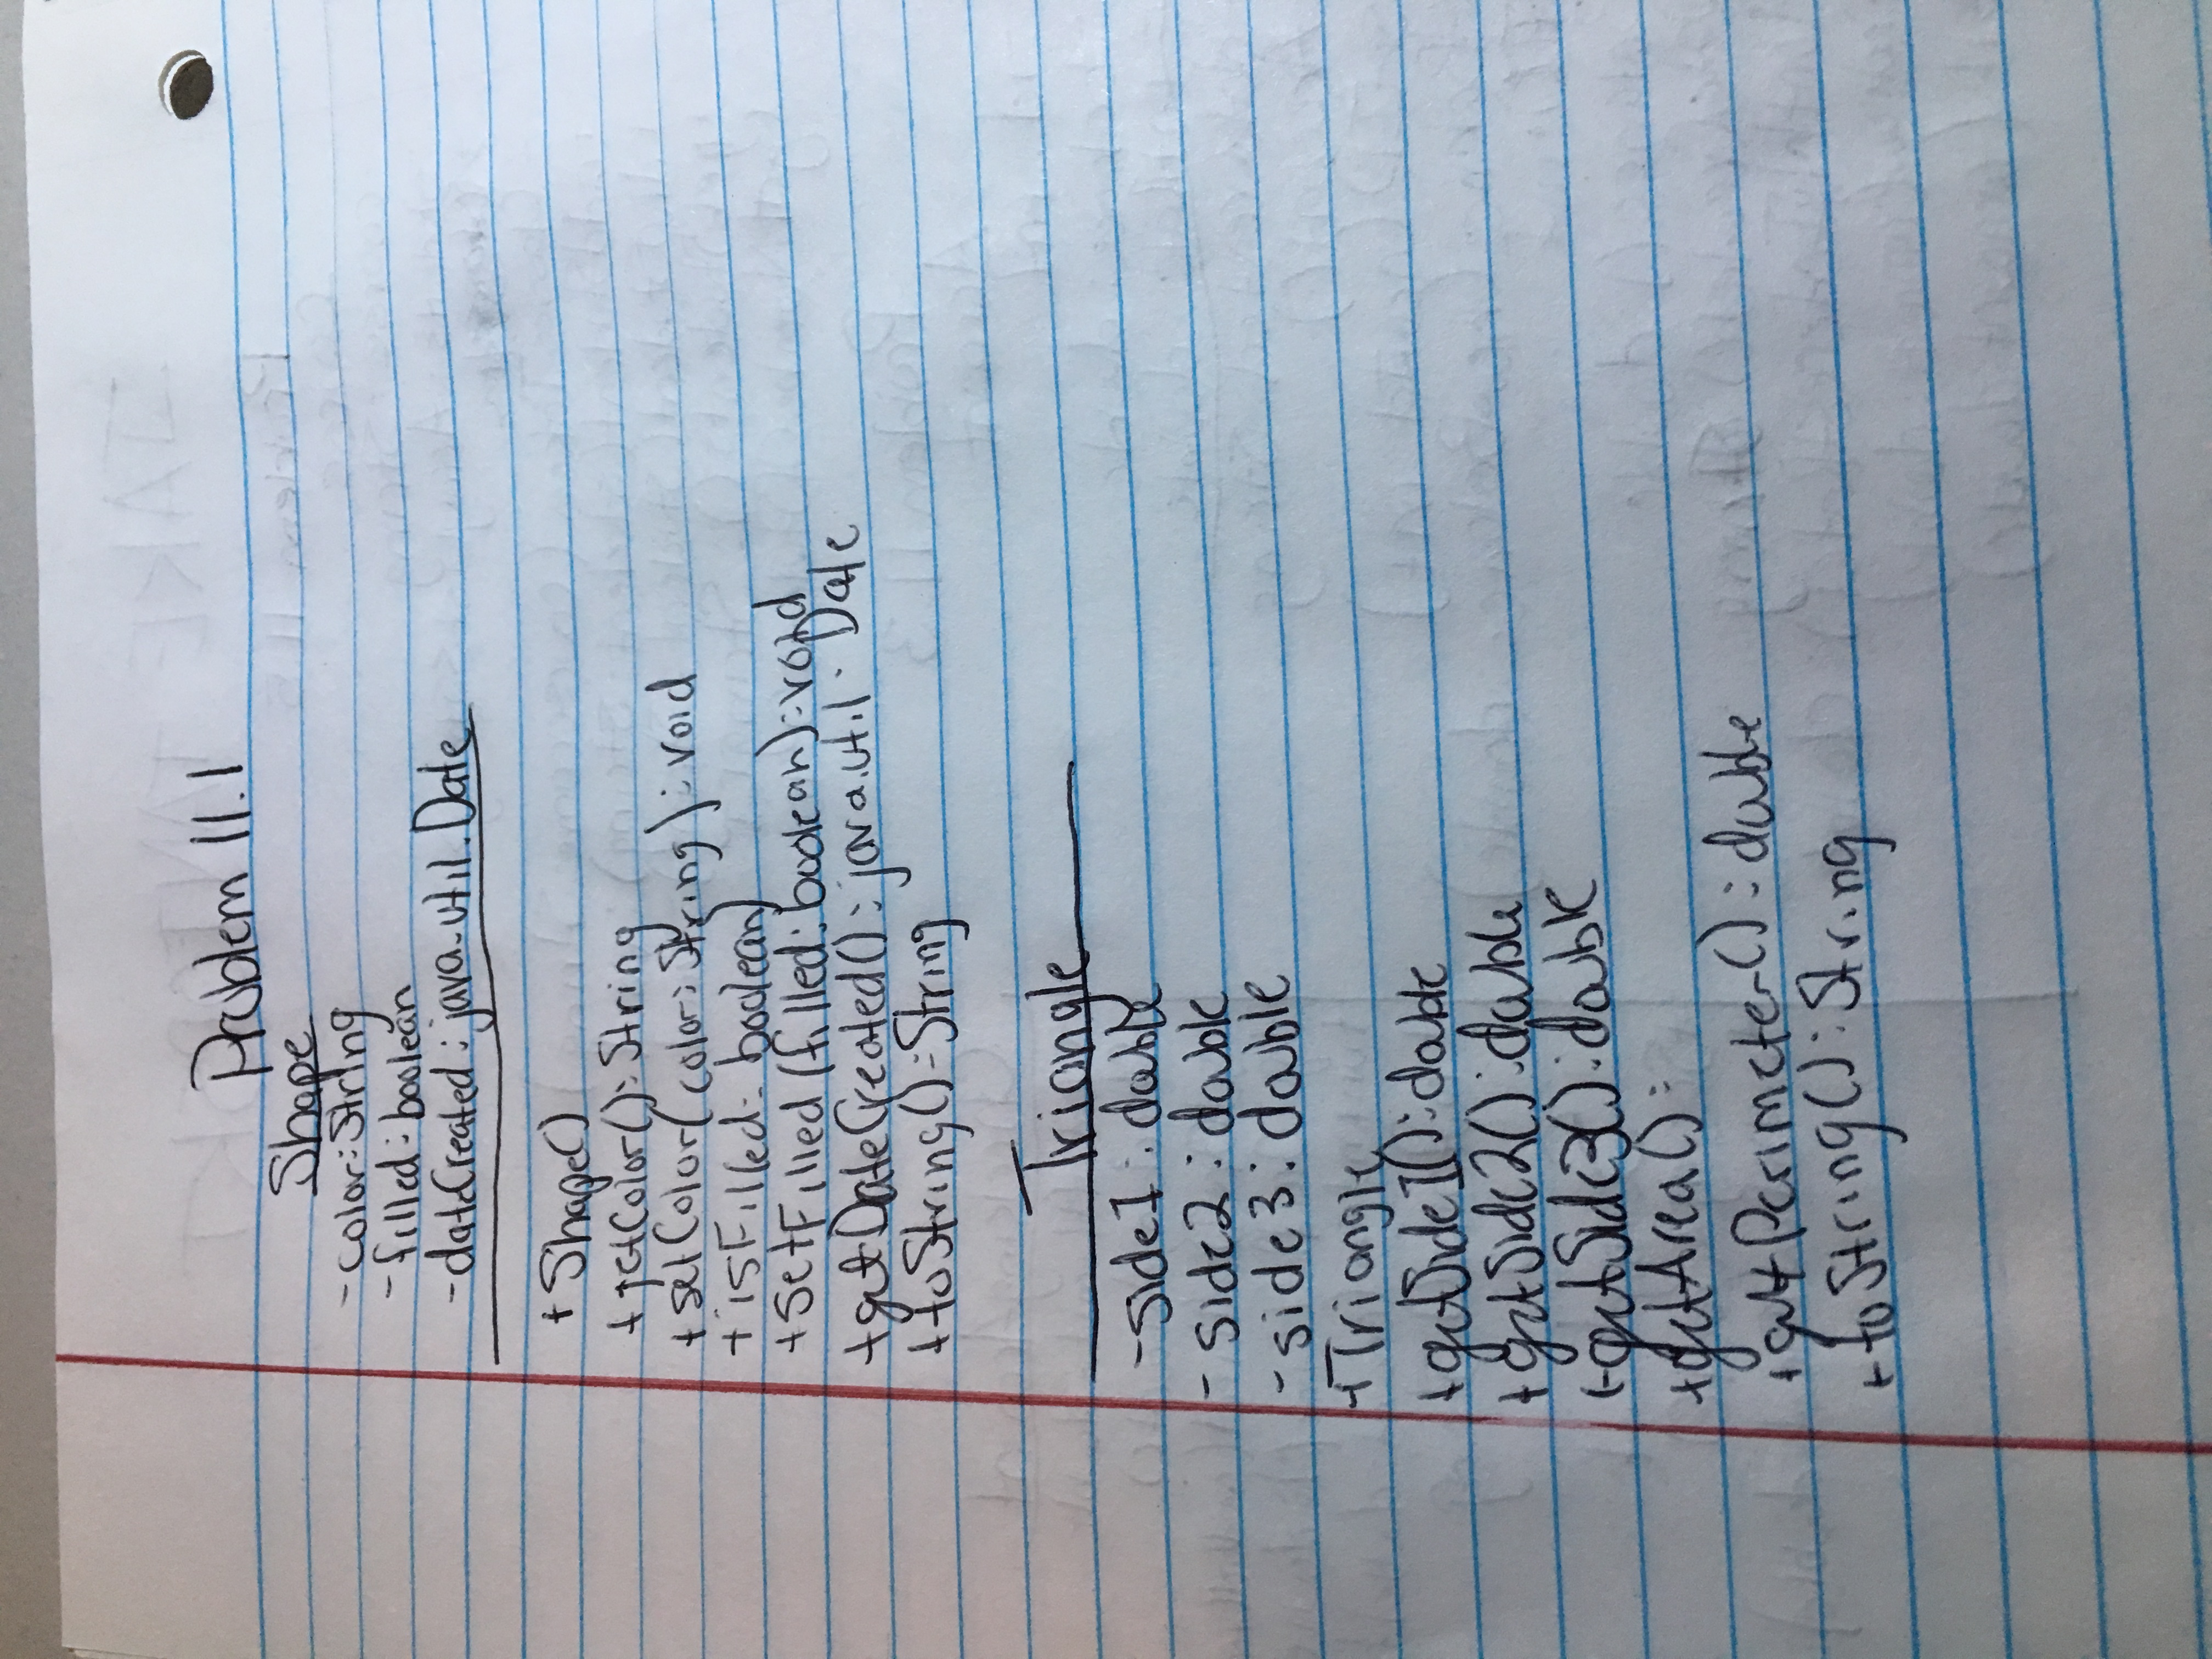 Problem 11.1
Shape
-color: String
-filled: boolean
-dateCreated: java.util.Date
+Shape()
+getColor(): String
+setColor(color: String): void
+isFilled: boolean)
+setFilled(filled: boolean): void
+getDateCreated(): java.util.Date
+toString(): String
Triangle
-side1: double
-side2: double
-side3: double
+Triangle
+getSide1(): double
+getSide2(): double
+getSide3(): double
+getArea():
+getPerimeter(): double
+toString(): String